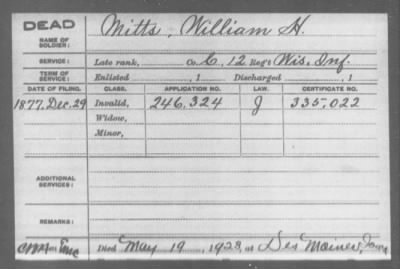 DEAD
NAME OF SOLDIER:
Mitts, William H.
SERVICE: Late rank, Co. C, 12 Reg't Wis. Inf.
TERM OF SERVICE: Enlisted , 1 Discharged , 1
DATE OF FILING. CLASS. APPLICATION NO. LAW. CERTIFICATE NO.
1877, Dec. 29 Invalid, 246,324 J 335,022
Widow,
Minor,
ADDITIONAL SERVICES:
REMARKS:
Died May 19, 1928, at Des Moines, Iowa